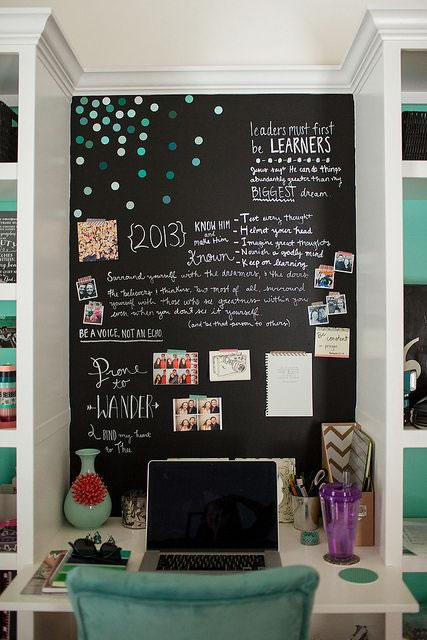 leaders must first
be LEARNERS
Jesus says He can do things
abundantly greater than my
BIGGEST dream.
{2013}
KNOW HIM
and
make Him
Known
- Test every thought
- Helmet your head
- Imagine great thoughts
- Nourish a godly mind
- Keep on learning
Surround yourself with the dreamers, & the doers,
the believers & thinkers, but most of all, surround
yourself with those who see greatness within you
even when you don't see it yourself.
(and be that person to others)
BE A VOICE, NOT AN ECHO
Be
constant
Prone
to
WANDER
BIND my heart
to Thee